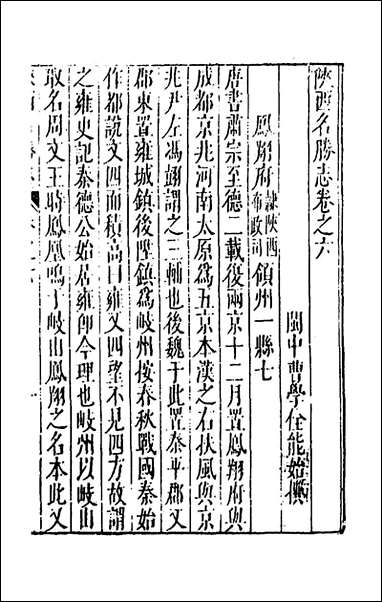 陝西名勝志卷之六
閩中曹學佺能始撰
鳳翔府隸陝西布政司領州一縣七
唐書肅宗至德二載復兩京十二月置鳳翔府與
成都京兆河南太原爲五京本漢之右扶風與京
兆尹左馮翊謂之三輔也後魏于此置秦平郡又
郡東置雍城鎮後陞鎮爲岐州按春秋戰國秦始
作都說文四面積高曰雍又四望不見四方故謂
之雍史記秦德公始居雍卽今理也岐州以岐山
取名周文王時鳳凰鳴于岐山鳳翔之名本此又